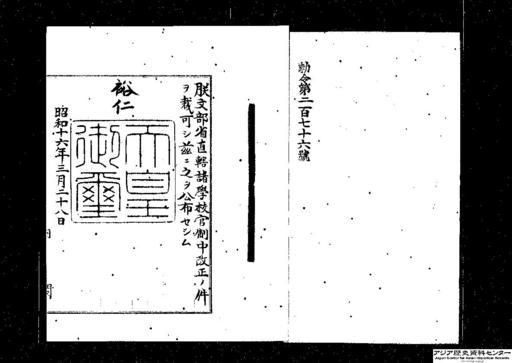 勅令第二百七十六號
朕文部省直轄諸學校官制中改正ノ件
ヲ裁可シ茲ニ之ヲ公布セシム
裕仁
天皇
御璽
昭和十六年三月二十八日
アジア歴史資料センター
Japan Center for Asian Historical Records